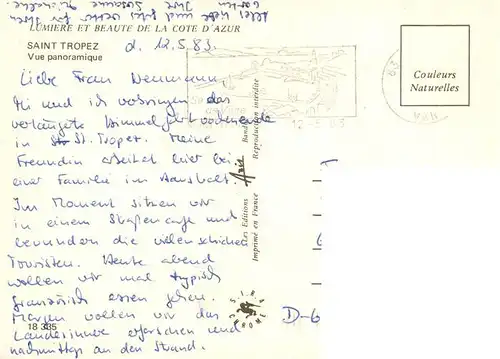 LUMIERE ET BEAUTE DE LA COTE D'AZUR
SAINT TROPEZ
Vue panoramique
d. 12.5.83
Couleurs
Naturelles
Liebe Frau Neumann,
und ich verbringen das
verlängerte Himmelfahrtwochenende
in St. Tropez. Meine
Freundin arbeitet hier bei
einer Familie im Haushalt.
Im Moment sitzen wir
in einem Straßencafe und
bewundern die vielen schicken
Touristen. Heute abend
wollen wir mal typisch
französisch essen gehen.
Morgen wollen wir das
Landesinnere erforschen und
nachmittags an den Strand.
Alles Liebe und
Reproduction interdite
Les Editions
Imprimé en France
18 385
D-6